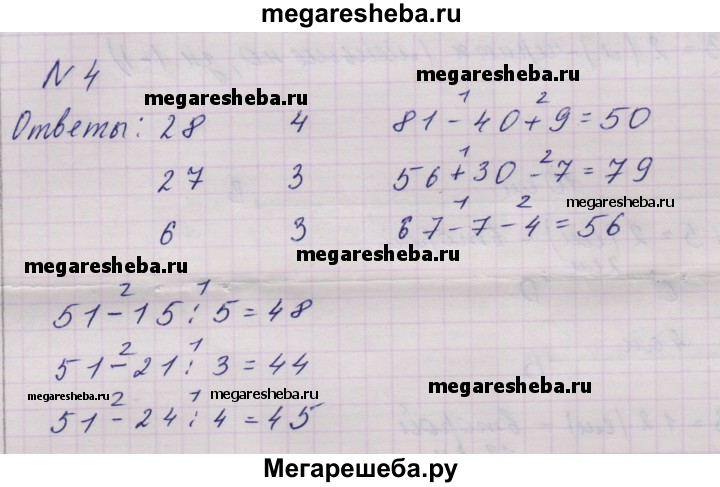 megaresheba.ru
N 4
megaresheba.ru
megaresheba.ru
1 2
Ответы: 28 4 81 - 40 + 9 = 50
1 2
27 3 56 + 30 - 7 = 79
megaresheba.ru
1 2
6 3 67 - 7 - 4 = 56
megaresheba.ru
megaresheba.ru
2 1
51 - 15 : 5 = 48
2 1
51 - 21 : 3 = 44
megaresheba.ru
megaresheba.ru
megaresheba.ru
2 1
51 - 24 : 4 = 45
Мегарешеба.ру